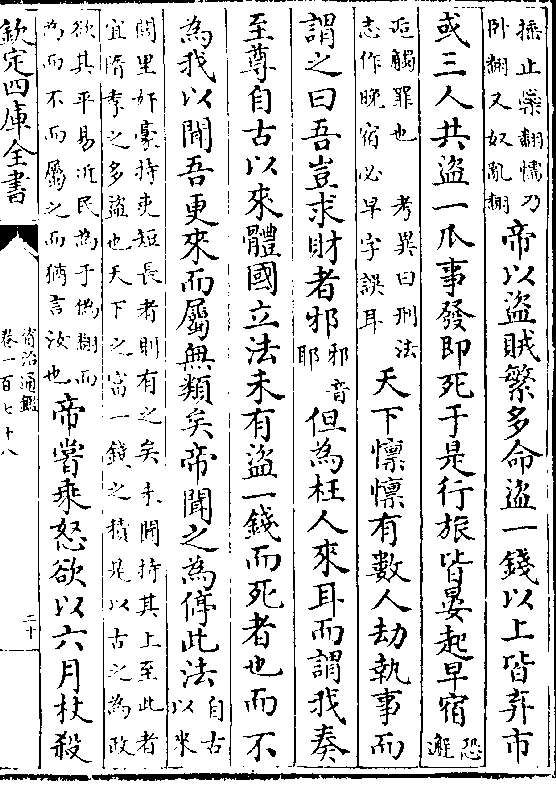 捶止橤翻懦乃
卧翻又奴亂翻
帝以盜賊繁多命盜一錢以上皆弃市
或三人共盜一瓜事發即死于是行旅皆晏起早宿
恐
邂
逅觸罪也　考異曰刑法
志作晚宿必早字誤耳
天下懍懍有數人劫執事而
謂之曰吾豈求財者邪
邪音
耶
但為枉人來耳而謂我奏
至尊自古以來體國立法未有盜一錢而死者也而不
為我以聞吾更來而屬無類矣帝聞之為停此法
自古
以來
閭里奸豪持吏短長者則有之矣未聞持其上至此者
宜隋季之多盜也天下之富一錢之積是以古之為政
欲其平易近民為于偽翻而
為而不而屬之而猶言汝也
帝嘗乘怒欲以六月杖殺
欽定四庫全書
資治通鑑
卷一百七十八
二十